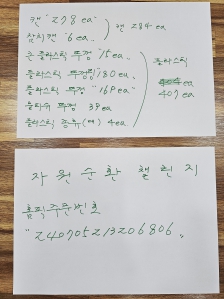 캔 "278 ea
참치캔 "6 ea„
캔 284 ea
큰 플라스틱 뚜껑 "15 ea„
플라스틱 뚜껑 "180 ea„
플라스틱 뚜껑 "169 ea„
물티슈 뚜껑 39 ea
플라스틱 종류(색) 4 ea
플라스틱
ea
407 ea
자원순환 챌린지
홈픽주문번호
"240705213206806„